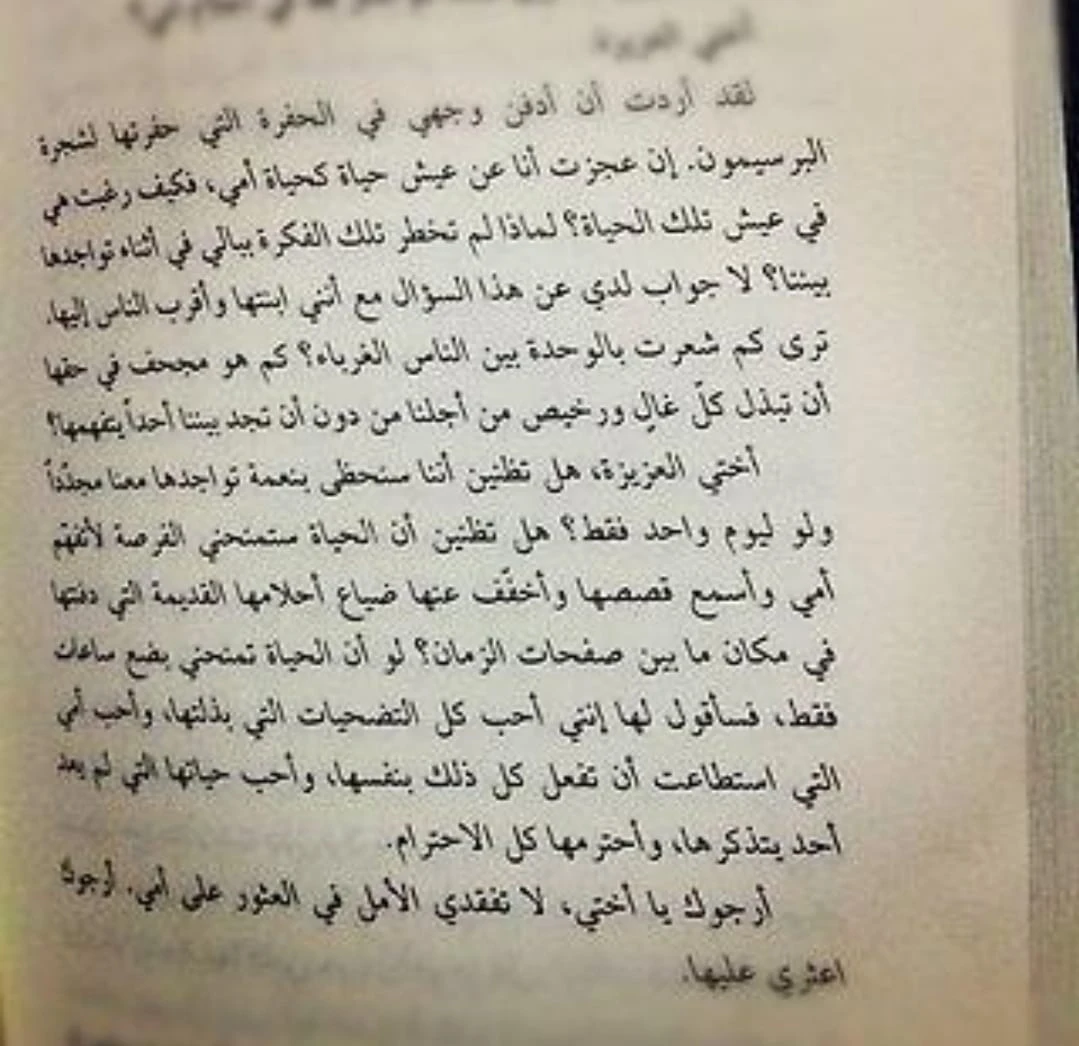 أختي العزيزة
لقد أردت أن أدفن وجهي في الحفرة التي حفرتها لشجرة
البرسيمون. إن عجزت أنا عن عيش حياة كحياة أمي، فكيف رغبت هي
في عيش تلك الحياة؟ لماذا لم تخطر تلك الفكرة ببالي في أثناء تواجدها
بيننا؟ لا جواب لدي عن هذا السؤال مع أنني ابنتها وأقرب الناس إليها.
ترى كم شعرت بالوحدة بين الناس الغرباء؟ كم هو مجحف في حقها
أن تبذل كلّ غالٍ ورخيص من أجلنا من دون أن تجد بيننا أحداً يتفهمها؟
أختي العزيزة، هل تظنين أننا سنحظى بنعمة تواجدها معنا مجدّداً
ولو ليوم واحد فقط؟ هل تظنين أن الحياة ستمنحني الفرصة لأتفهّم
أمي وأسمع قصصها وأخفّف عنها ضياع أحلامها القديمة التي دفنتها
في مكان ما بين صفحات الزمان؟ لو أن الحياة تمنحني بضع ساعات
فقط، فسأقول لها إنني أحب كل التضحيات التي بذلتها، وأحب أمي
التي استطاعت أن تفعل كل ذلك بنفسها، وأحب حياتها التي لم يعد
أحد يتذكرها، وأحترمها كل الاحترام.
أرجوك يا أختي، لا تفقدي الأمل في العثور على أمي. أرجوك
اعثري عليها.